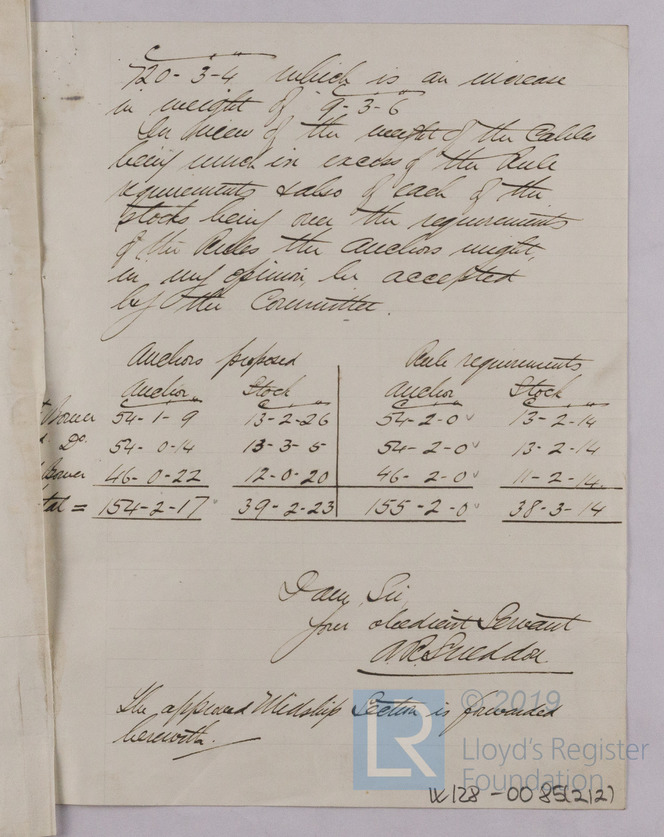 C " "
720-3-4 which is an increase
C " "
in weight of 9-3-6
In view of the weight of the Cables
being much in excess of the Rule
requirements & also of each of the
Stocks being over the requirements
of the Rules the Anchors might,
in my opinion, be accepted
by the Committee.
Anchors proposed Rule requirements
Anchor Stock Anchor Stock
C " " C " " C " " C " "
Bower 54-1-9 13-2-26 54-2-0 13-2-14
Do. 54-0-14 13-3-5 54-2-0 13-2-14
Bower 46-0-22 12-0-20 46-2-0 11-2-14
tal = 154-2-17 39-2-23 155-2-0 38-3-14
I am, Sir,
Your obedient Servant
The approved Midship Section is forwarded
herewith.
© 2019
LR
Lloyd's Register
Foundation
W128-0085(2/2)